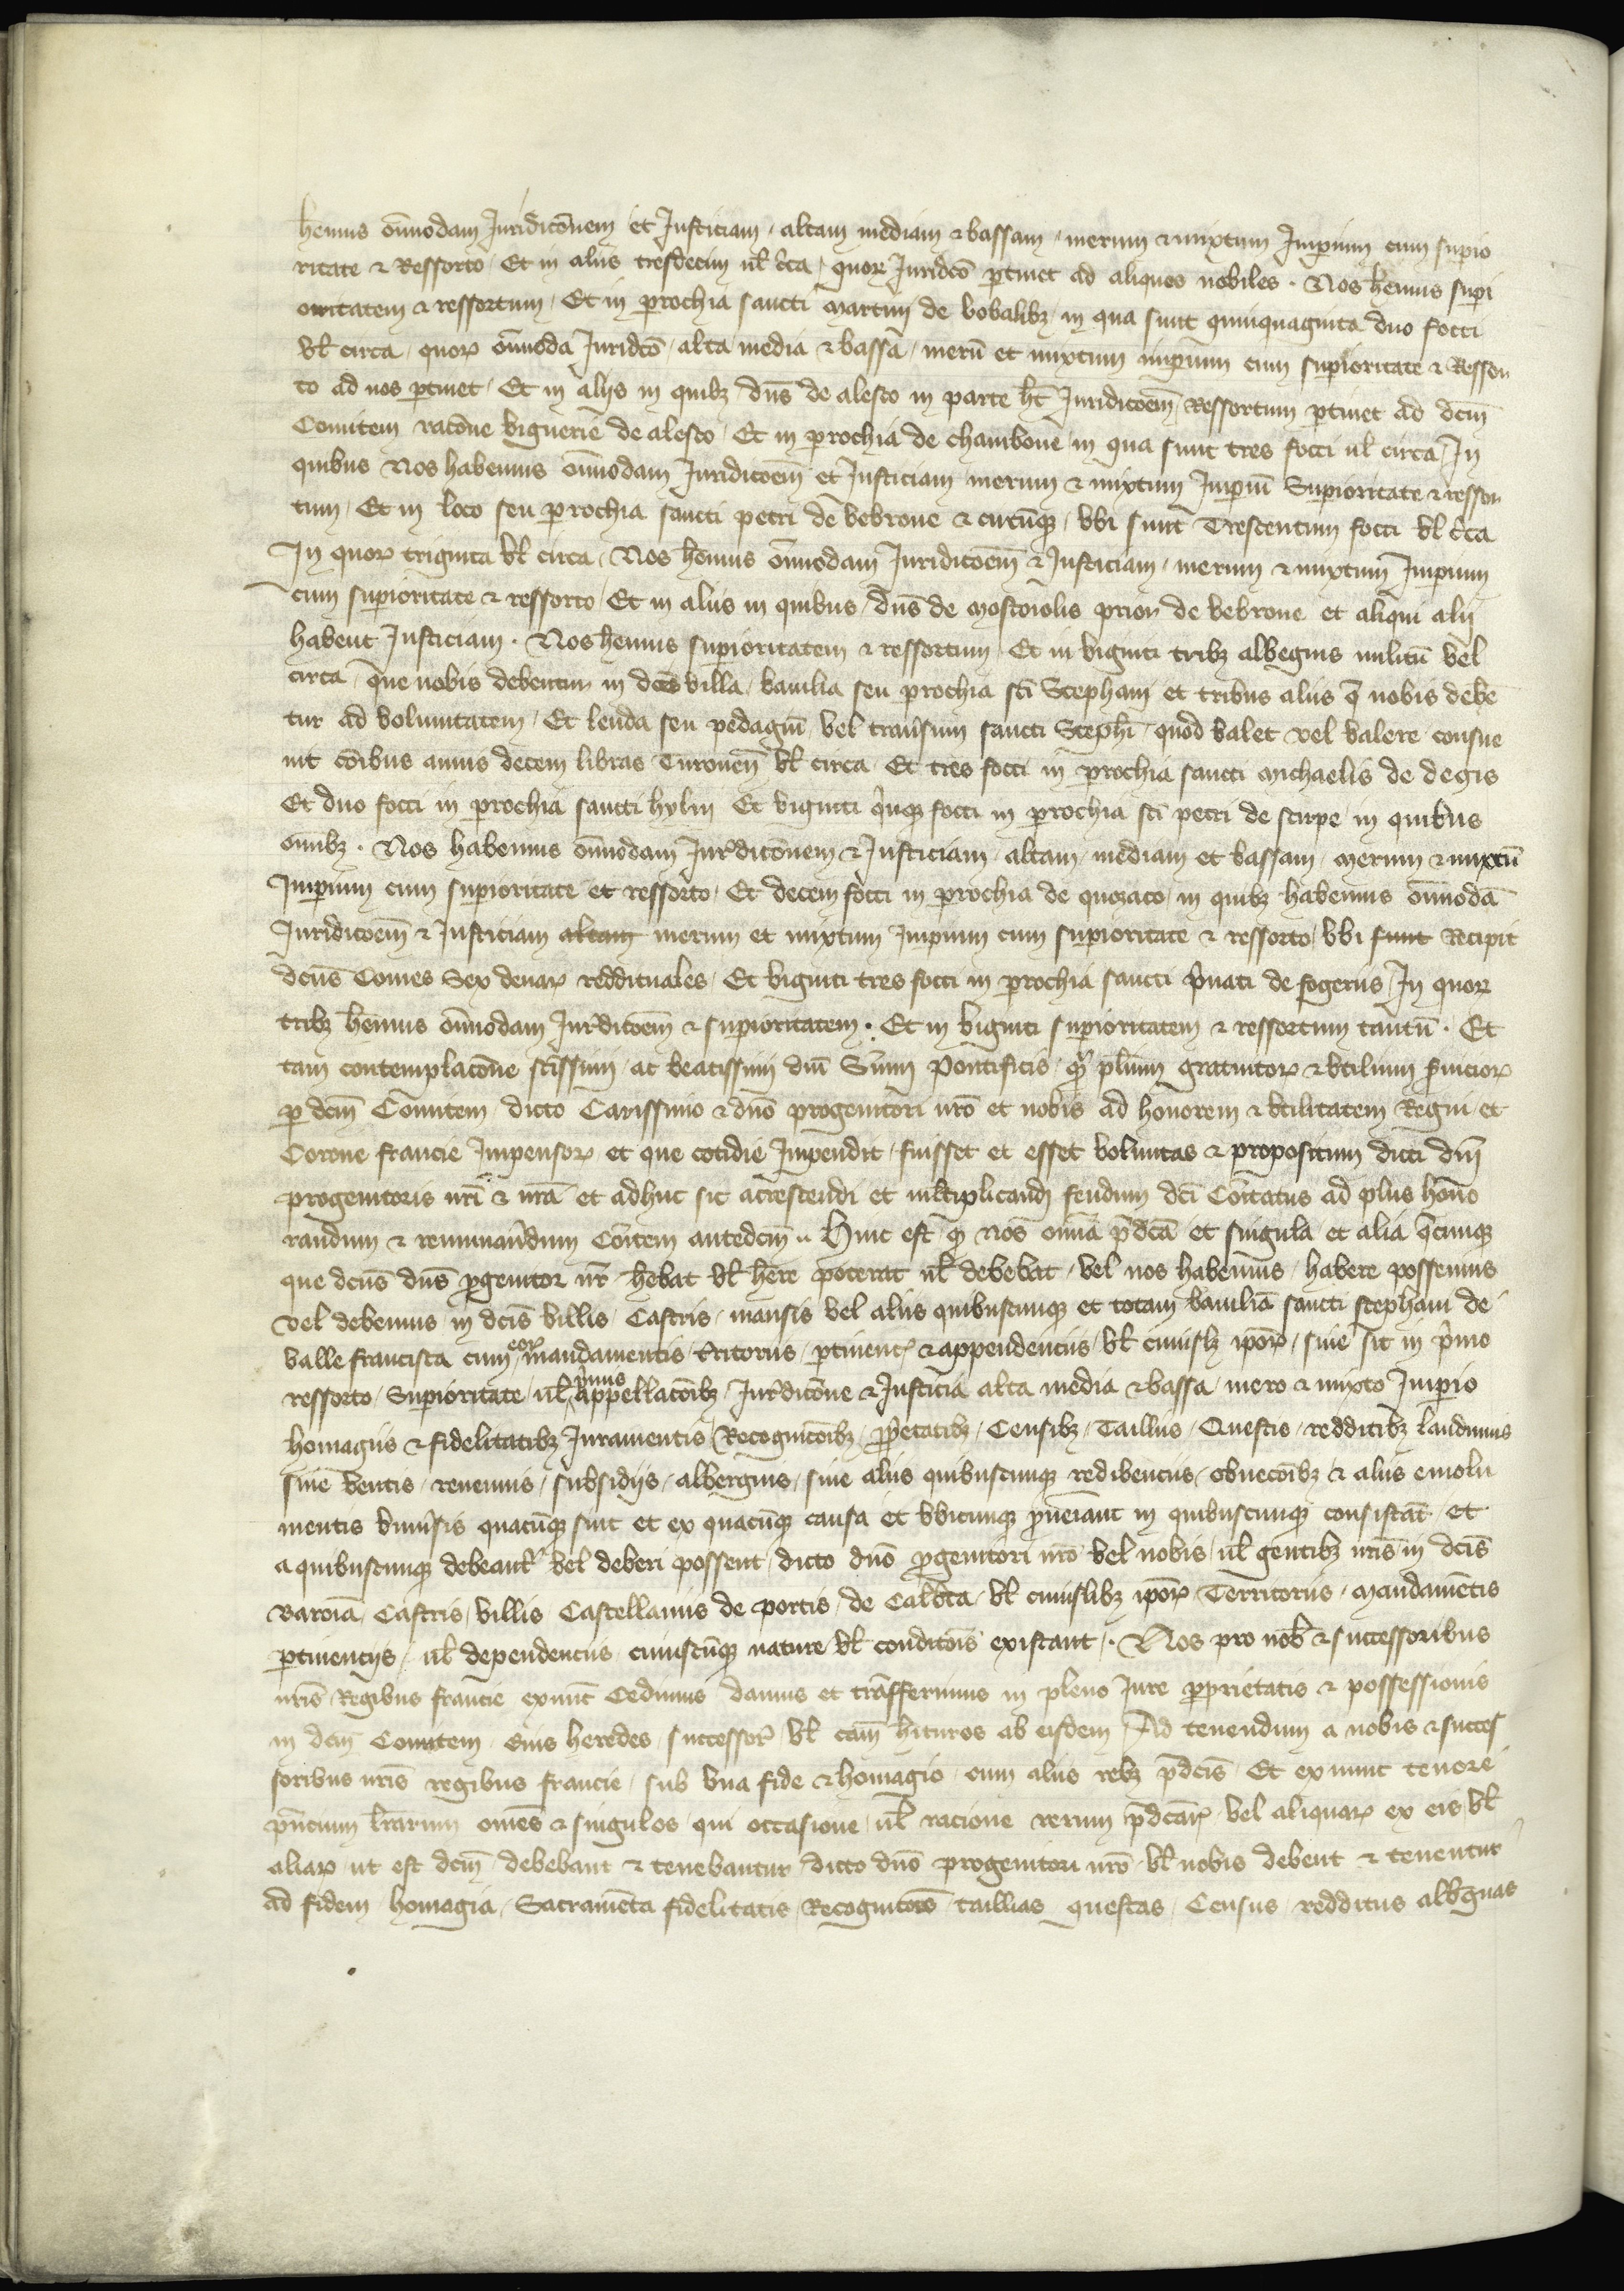 hem̄us om̄modam Juridicōnem et Justiciam altam mediam & bassam merum & mixtum Imperium cum supio
ritate & Ressorto Et in aliis tresdecim vl̄ c̄ca quoꝝ Juridcō ꝑtinet ad aliquos nobiles . Nos hem̄us supi
oritatem & ressortum Et in ꝑrochia sancti martini de bobalibꝫ in qua sunt quinquaginta duo focci
vl̄ circa quoꝝ om̄moda Juridcō alta media & bassa merū et mixtum imperium cum supioritate & Ressor
to ad nos ꝑtinet Et in alijs in quibꝫ dn̄s de alesto in parte hēt Juridicoēm Ressortum ꝑtinet ad dcm̄
Comitem racōne viguerie de alesto Et in ꝑrochia de chambone in qua sunt tres focci vl̄ circa In
quibus Nos habemus om̄modam Juridicoēm et Justiciam merum & mixtum Imperiū Supioritate & ressor
tum Et in loco seu ꝑrochia sancti petri de vebrone & circūqꝫ vbi sunt Trescentum focci vl̄ c̄ca
In quoꝝ triginta vl̄ circa Nos hem̄us om̄modam Juridicoēm & Justiciam merum & mixtum Imperium
cum supioritate & ressorto Et in aliis in quibus dn̄s de mostoiolis prior de vebrone et aliqui alij
habent Justiciam . Nos hem̄us supioritatem & ressortum Et in viginti tribꝫ albegiis militū vel
circa que nobis debentur in dc̄is villa bauilia seu ꝑrochia sc̄i Stephani et tribus aliis q̄ nobis debē
tur ad voluntatem Et leuda seu pedagiū vel transsum sancti Steph̄i quod valet vel valere consue
uit cōibus annis decem libras Turoneñ vl̄ circa Et tres focci in ꝑrochia sancti michaelis de degis
Et duo focci in ꝑrochia sancti hylii Et viginti qinqꝫ focci in ꝑrochia sc̄i petri de stirpe in quibus
om̄ibꝫ . Nos habemus om̄modam Jurdicōnem & Justiciam altam mediam et bassam merum & mixtū
Imperium cum supioritate et ressorto Et decem focci in ꝑrochia de quezaco in quibꝫ habemus om̄modā
Juridicoēm & Justiciam altam merum et mixtum Imperium cum supioritate & ressorto vbi sunt Recipit
dcūs Comes Sex denaꝝ reddituales Et viginti tres focci in ꝑrochia sancti p̄uati de fogeriis In quoꝝ
tribꝫ hem̄us om̄modam Jurdicoēm & supioritatem . Et in viginti supioritatem & ressortum tantū . Et
tam contemplacōne sc̄issimi ac beatissimi dn̄i Sūmi Pontificis q̄ plimū gratuitoꝝ & vtilium s̄uicioꝝ
ꝑ dcm̄ Comitem dicto Carissimo & dn̄o progenitori nr̄o et nobis ad honorem & vtilitatem Regni et
Corone francie Impensoꝝ et que cotidie Impendit fuisset et esset voluntas & propositum dicti dn̄i
progenitoris nr̄i & nr̄a et adhuc sit accrescendi et mltiplicandi feudum dc̄i Comitatus ad plus hono
randum & remunerandum Comitem antedcm̄ . Hinc est q̄ nos om̄ia p̄dcā et singula et alia q̄cunqꝫ
que dcūs dn̄s ꝓgenitor nr̄ hēbat vl̄ hēre poterat vl̄ debebat vel nos habemus habere possemus
vel debemus in dc̄is villis Castris mansis vel aliis quibuscunqꝫ et totam bauiliā sancti stephani de
valle francisca cum eoꝝ mandamentis tritoriis ꝑtinenc̄ & appendenciis vl̄ cuiuslꝫ ip̄oꝝ siue sit in p̄mo
ressorto Supioritate vl̄ p̄mis appellacōibꝫ Jurdicōne & Justicia alta media & bassa mero & mixto Imperio
homagiis & fidelitatibꝫ Juramentis Recognicōibꝫ ꝓp̄etatibꝫ Censibꝫ Tailliis Questis redditibꝫ laudimiis
siue ventis reuenuis subsidijs albergiis siue aliis quibuscunqꝫ redibenciis obuecōibꝫ & aliis emolu
mentis vniuersis quacūqꝫ sint et ex quacūqꝫ causa et vbicunqꝫ ꝓueniant in quibuscunqꝫ consistāt et
a quibuscunqꝫ debeant̄ vel deberi possent dicto dn̄o ꝓgenitori nr̄o vel nobis vl̄ gentibꝫ nr̄is in dc̄is
Baroīa Castris villis Castellaniis de portis de Calb̄ta vl̄ cuiuslibꝫ ip̄oꝝ Territoriis mandamētis
ꝑtinencijs vl̄ dependenciis cuiuscūqꝫ nature vl̄ condicōis existant . Nos pro nob̄ & successoribus
nr̄is Regibus francie exnūc Cedimus damus et trāsferimus in pleno Jure ꝓprietatis & possessionis
in dcm̄ Comitem eius heredes successor̄ vl̄ cām hituros ab eisdem Ad tenendum a nobis & succes
soribus nr̄is regibus francie sub vna fide & homagio cum aliis rebꝫ p̄dc̄is Et exnunc tenore
p̄ncium lr̄arum om̄es & singulos qui occasione vl̄ racione rerum p̄dcāꝝ vel aliquaꝝ ex eis vl̄
aliaꝝ ut est dcm̄ debebant & tenebantur dicto dn̄o progenitori nr̄o vl̄ nobis debent & tenentur
ad fidem homagia Sacramēta fidelitatis Recognicoēs taillias questas Census redditus alb̄guas